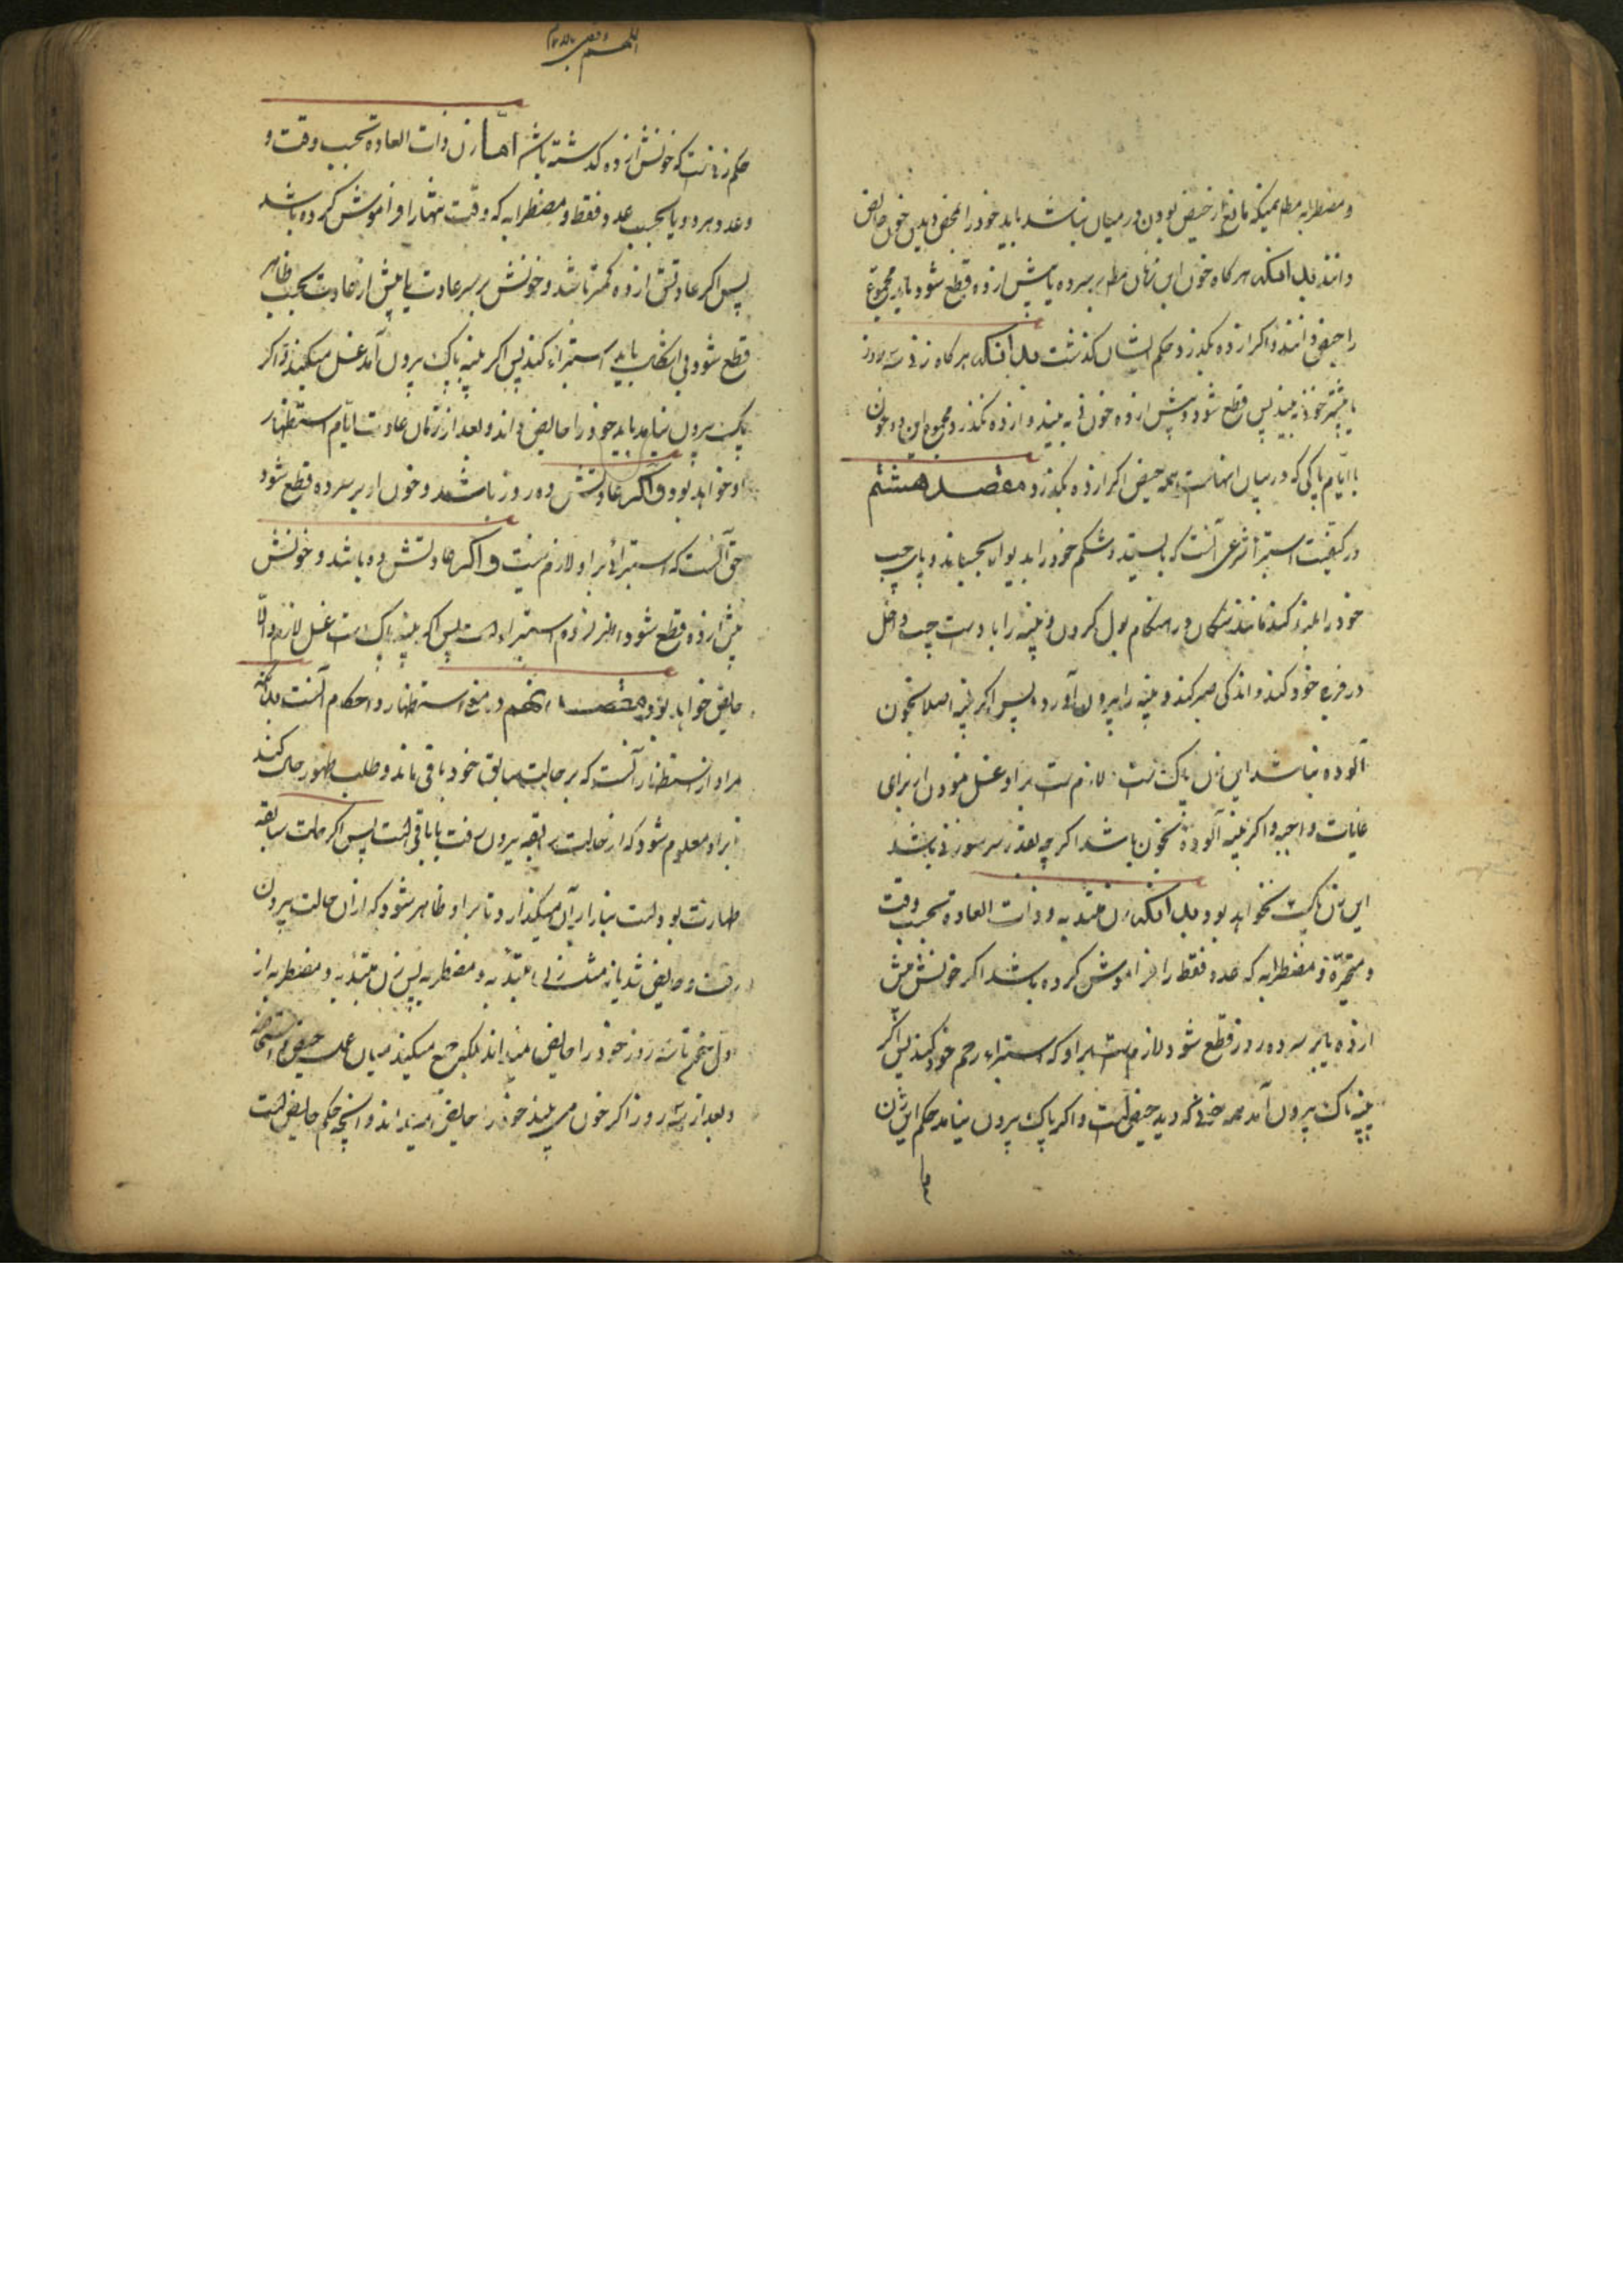 و مضطرابه مطلم همینکه مانع از حیض بودن در میان نباشد باید خود را بمحض دیدن خون حایض
دانند بدانکه هر کاه خون این زنان بر سر ده یا پیش از ده قطع شود باید مجموع
را حیض دانند و اکر از ده بکذرد حکم ایشان کذشت بدانکه هر کاه زنی سه روز
یا بیشتر خون به بیند پس قطع شود و پیش از ده خون به بیند و از ده نکذرد مجموع این دو خون
با ایام پاکی که در میان انهاست همه حیض اکر از ده بکذرد مقصد هشتم
در کیفیت استبرا شرعی آنست که بایستد و شکم خود را بدیوار بچسباند و پای چپ
خود را بلند کند مانند سکان در هنکام بول کردن و پنبه را با دست چپ داخل
در فرج خود کند و اندکی صبر کند و پنبه را بیرون آورد پس اکر پنبه اصلا بخون
آلوده نباشد این زن پاک است لازم است بر او غسل نمودن از برای
غایات واجبه و اکر پنبه آلوده بخون باشد اکر چه بقدر سر سوزنی باشد
این زن پاک نخواهد بود بدانکه زن مبتدیه و ذات العاده بحسب وقت
و متحیره و مضطرابه که عدد فقط را فراموش کرده باشد اکر خونش پیش
از ده یا بر سر ده روز قطع شود لازم است بر او که استبراء رحم خود کند پس اکر
پنبه پاک بیرون آمد همه خونی که دید حیض است و اکر پاک بیرون نیامد حکم این زن
حکم زنانیست که خونش از ده کذشته باشد اما زن ذات العاده بحسب وقت و
و عدد هر دو و یا بحسب عدد فقط و مضطرابه که وقت تنها را فراموش کرده باشد
پس اکر عادتش از ده کمتر باشد و خونش بر سر عادت یا پیش از عادت بحسب ظاهر
قطع شود باید استبراء کند پس اکر پنبه پاک بیرون آمد غسل میکند و اکر
پاک بیرون نیاید باید خود را حایض داند و بعد از زمان عادت ایام استظهار
او خواهد بود و اکر عادتش ده روز باشد و خون او بر سر ده قطع شود
حق آنست که استبرائی بر او لازم نیست و اکر عادتش ده باشد و خونش
پیش از ده قطع شود لزوم استبراء است پس اکر پنبه پاک است غسل لازم و الا
حایض خواهد بود مقصد نهم در معنی استظهار و احکام آنست بدانکه
مراد از استظهار آنست که بر حالت سابق خود باقی ماند و طلب ظهور حال کند
تا بر او معلوم شود که از حالت سابقه بیرون رفت یا باقی است پس اکر حالت سابقه
طهارت بود است بنا را بر آن میکذارد تا بر او ظاهر شود که از ان حالت بیرون
رفت و حایض شد یا نه مثل زن مبتدیه و مضطربه پس زن مبتدیه و مضطربه از
اول تا سه روز خود را حایض نمیداند بلکه جمع میکند میان عمل حیض و استحاضه
و بعد از سه روز اکر خون می بیند خود را حایض میداند و آنچه حکم حایض است